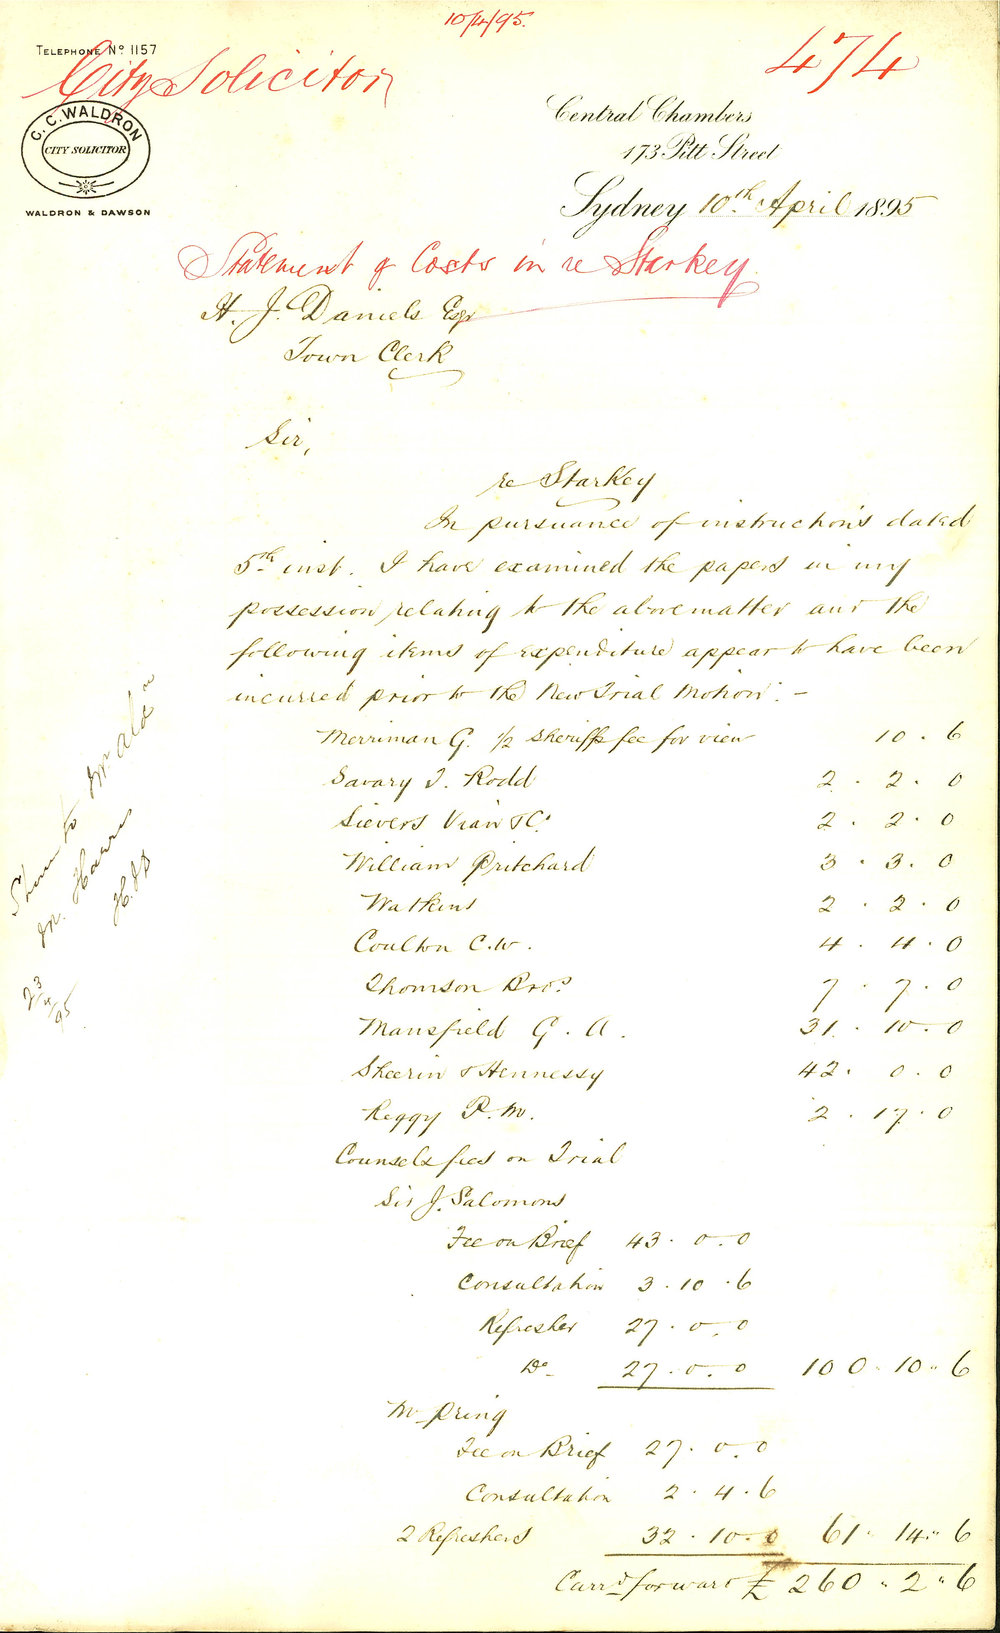 10/4/95.
TELEPHONE Nº 1157
City Solicitor
474
C. C. WALDRON
CITY SOLICITOR
WALDRON & DAWSON
Central Chambers
173 Pitt Street
Sydney 10th April 1895
Statement of Costs in re Starkey
H. J. Daniels Esqr
Town Clerk
Sir,
re Starkey
In pursuance of instructions dated
5th inst. I have examined the papers in my
possession relating to the above matter and the
following items of expenditure appear to have been
incurred prior to the New Trial Motion: -
Merriman G. 1/2 Sheriffs fee for view 10 . 6
Savary T. Rodd 2 . 2 . 0
Sievers Vian & Co 2 . 2 . 0
William Pritchard 3 . 3 . 0
Watkins 2 . 2 . 0
Coulton C.W. 4 . 4 . 0
Thomson Bros 7 . 7 . 0
Mansfield G. A. 31 . 10 . 0
Sheerin & Hennessy 42 . 0 . 0
Reggy P. M. 2 . 17 . 0
Counsels fees on Trial
Sir J. Salomons
Fee on Brief 43 . 0 . 0
Consultation 3 . 10 . 6
Refresher 27 . 0 . 0
Do 27 . 0 . 0 100 " 10 " 6
Mr Pring
Fee on Brief 27 . 0 . 0
Consultation 2 . 4 . 6
2 Refreshers 32 . 10 . 0 61 " 14 " 6
Carrd forward £ 260 " 2 " 6
to Mr
Mr. Harris
H.J.D
23/4/95